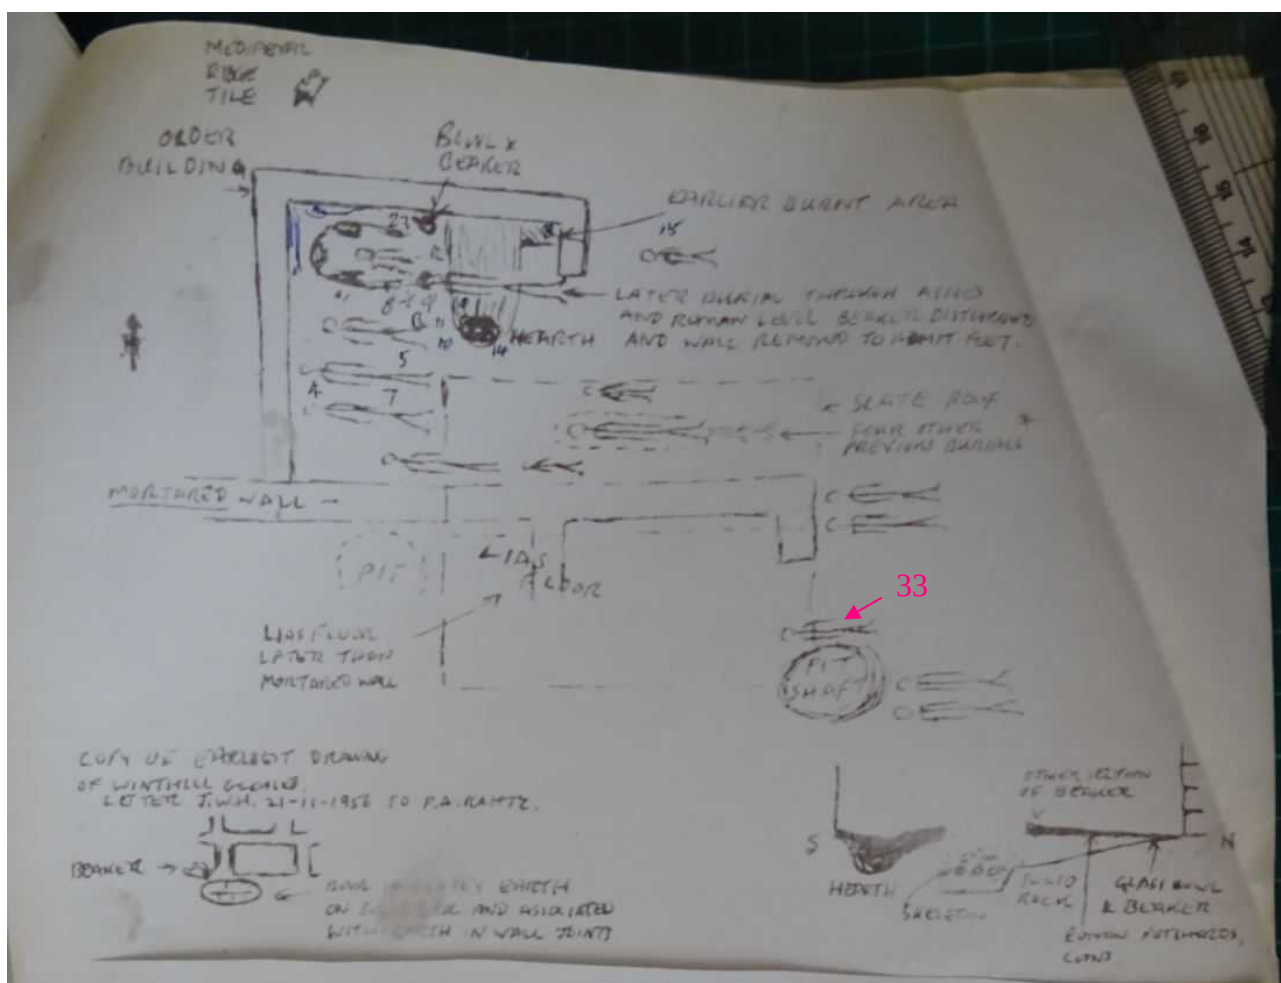 MEDIAEVAL
RIDGE
TILE
ORDER
BUILDING
BOWL &
BEAKER
EARLIER BURNT AREA
15
23
LATER BURIAL THROUGH ASHES
AND ROMAN LEVEL BEAKER DISTURBED
AND WALL REMOVED TO ADMIT FEET.
8
9
11
10
14
HEARTH
5
4
7
SLATE ROOF
FOUR OTHER
PREVIOUS BURIALS
MORTARED WALL
PIT
LIAS
FLOOR
33
LIAS FLOOR
LATER THAN
MORTARED WALL
PIT
SHAFT
COPY OF EARLIEST DRAWING
OF WINTHILL
LETTER J.W.H. 21-11-1956 TO P.A. RAHTZ.
BEAKER
EARTH
ON AND ASSOCIATED
WITH EARTH IN WALL JOINTS
S
HEARTH
SKELETON
OTHER SECTION
OF BEAKER
N
SOLID
ROCK
GLASS BOWL
& BEAKER
ROMAN POTSHERDS,
COINS